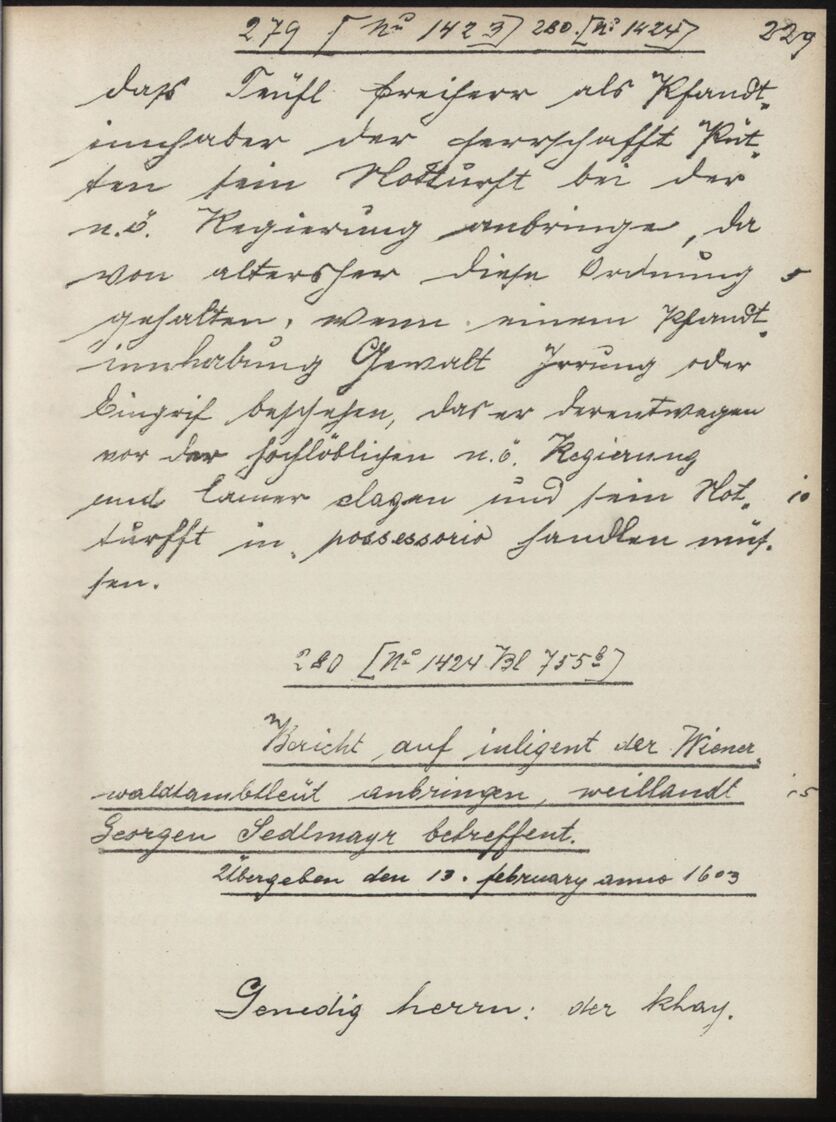 279 [No 1423] 280. [No 1424] 229
daß Teufl freiherr als Pfandt„
innhaber der herrschafft Püt„
ten sein Notturft bei der
n.ö. Regierung anbringe, da
von altersher diese Ordnung 5
gehalten, wenn einem Pfandt„
innhabung Gewalt Irrung oder
Eingrif beschehen, das er derentwegen
vor der hochlöblichen n.ö. Regierung
und Camer clagen und sein Not„ 10
turfft in possessorio handlen müs„
sen.
280 [No 1424 Bl 755b]
Bericht auf inligent der Wiener„
waldtambtleüt anbringen, weillandt 15
Georgen Sedlmayr betreffent.
Übergeben den 13. february anno 1603
Genedig herrn: der khay.